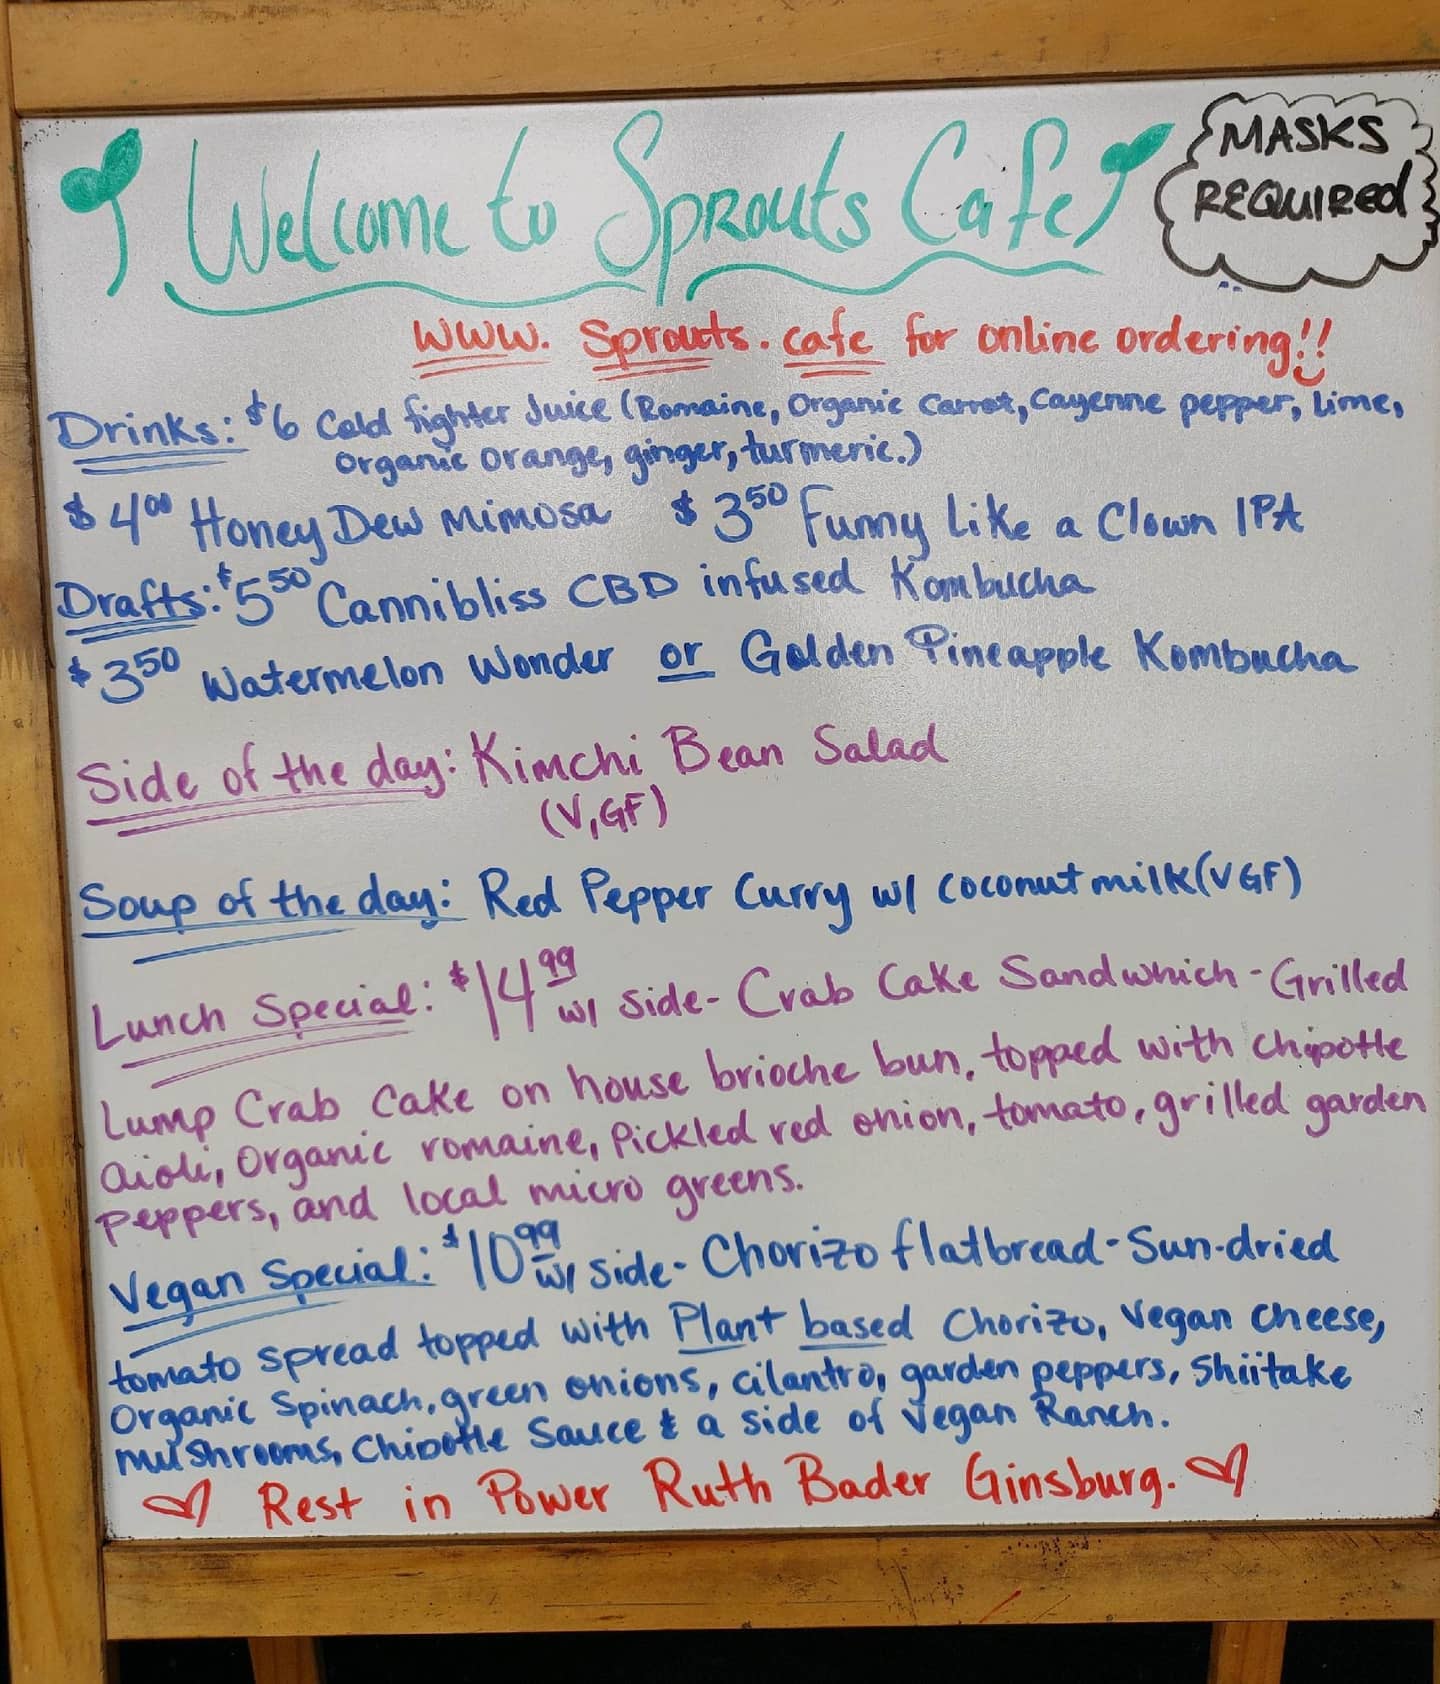 Welcome to Sprouts Cafe
MASKS
REQUIRED
www. Sprouts. cafe for online ordering!!
Drinks: $6 Cold fighter Juice (Romaine, Organic Carrot, Cayenne pepper, lime,
Organic Orange, ginger, turmeric.)
$4.00 Honey Dew Mimosa $3.50 Funny Like a Clown IPA
Drafts: $5.50 Cannibliss CBD infused Kombucha
$3.50 Watermelon Wonder or Golden Pineapple Kombucha
Side of the day: Kimchi Bean Salad
(V, GF)
Soup of the day: Red Pepper Curry w/ coconut milk (V GF)
Lunch Special: $14.99 w/ side- Crab Cake Sandwhich - Grilled
Lump Crab Cake on house brioche bun, topped with chipotle
aioli, Organic romaine, Pickled red onion, tomato, grilled garden
peppers, and local micro greens.
Vegan Special: $10.99 w/ side- Chorizo flatbread - Sun-dried
tomato spread topped with Plant based Chorizo, Vegan Cheese,
Organic Spinach, green onions, cilantro, garden peppers, Shiitake
mushrooms, Chipotle Sauce & a side of Vegan Ranch.
♡ Rest in Power Ruth Bader Ginsburg. ♡